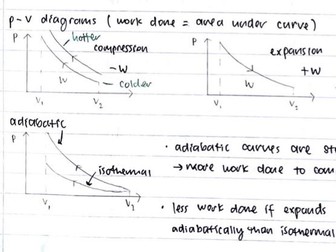 p-V diagrams (work done = area under curve)
P
hotter
compression
-W
W
colder
V₁
V₂
P
expansion
W
+W
V₁
V₂
adiabatic
P
isothermal
V₁
V₂
• adiabatic curves are
→ more work done to
• less work done if expands
adiabatically than isothermal